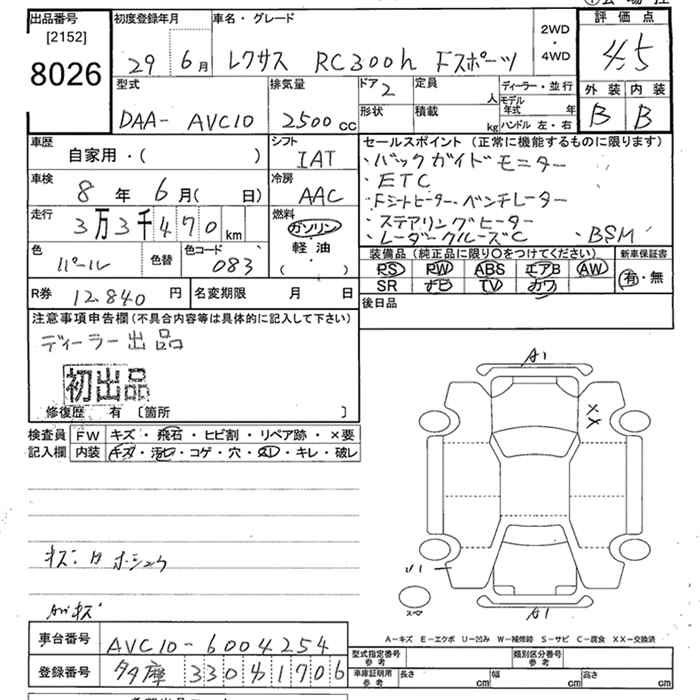 出品番号
[2152]
8026
初度登録年月
29 6月
車名・グレード
レクサス RC300h Fスポーツ
2WD
・
4WD
評価点
4.5
外装 内装
B B
型式
DAA- AVC10
排気量
2500cc
ドア 2
形状
定員
人
積載
kg
ディーラー・並行
モデル年式 年
ハンドル 左・右
車歴
自家用・( )
シフト
IAT
車検
8年 6月( 日)
冷房
AAC
走行
3万3千470km
燃料
ガソリン
軽油
( ・ )
色
パール
色替
色コード
083
R券 12,840円
名変期限 月 日
セールスポイント（正常に機能するものに限ります）
・バックガイドモニター
・ETC
・Fシートヒーター・ベンチレーター
・ステアリングヒーター
・レーダークルーズC ・BSM
装備品（純正品に限り○をつけてください）
PS PW ABS エアB AW
SR ナビ TV カワ
新車保証書
有・無
後日品
注意事項申告欄（不具合内容等は具体的に記入して下さい）
ディーラー出品
初出品
修復歴 有 〔箇所 〕
検査員記入欄
FW キズ・飛石・ヒビ割・リペア跡・×要
内装 キズ・汚レ・コゲ・穴・スレ・キレ・破レ
A1
XX
A1
A－キズ E－エクボ U－凹み W－補修跡 S－サビ C－腐食 XX－交換済
車台番号 AVC10-6004254
登録番号 多摩 330 1706
型式指定番号
参考
類別区分番号
参考
車庫証明用
参考
長さ cm 幅 cm 高さ cm